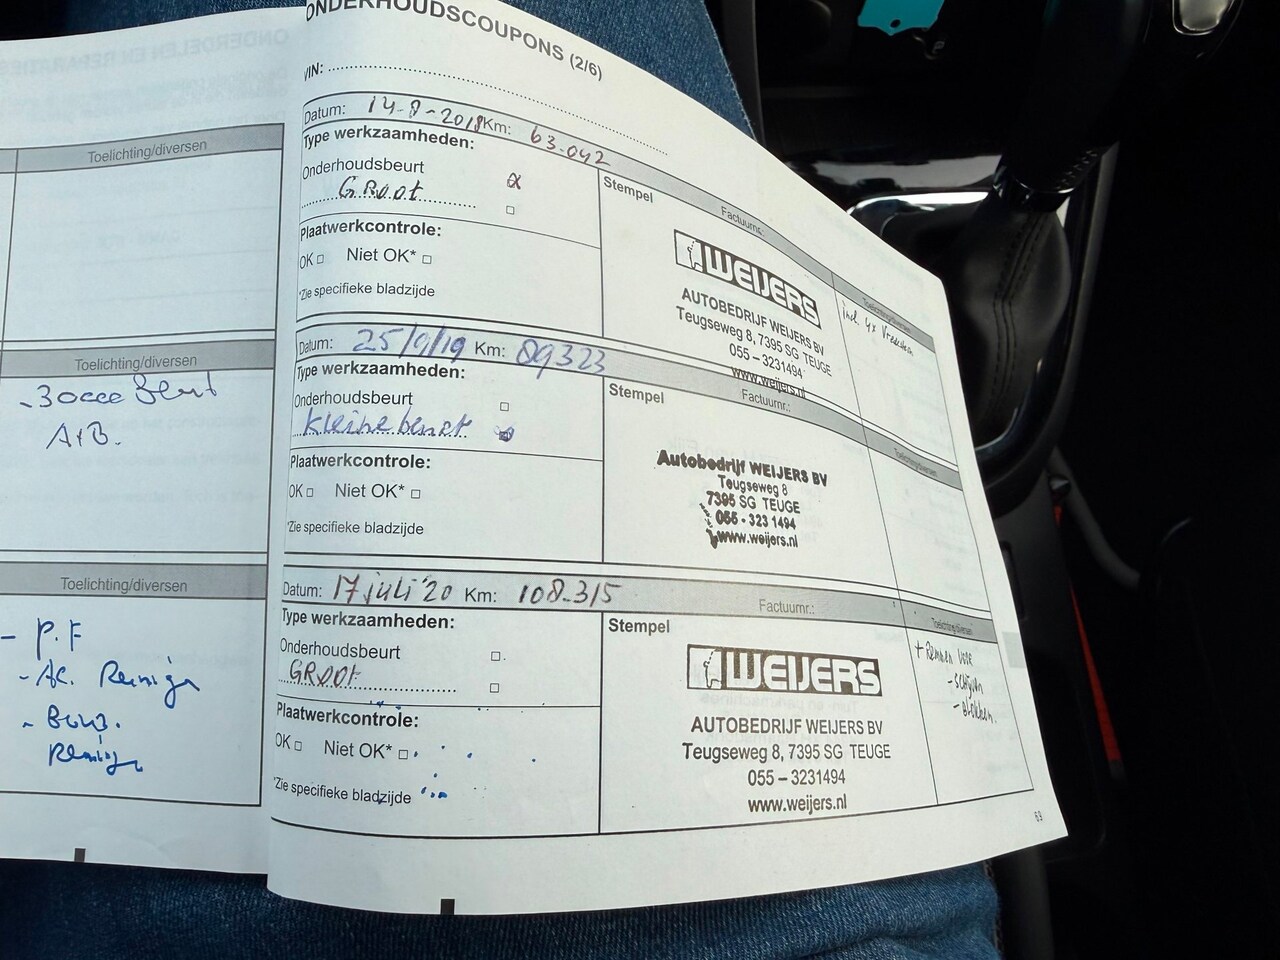 Toelichting/diversen
Toelichting/diversen
A+B.
Toelichting/diversen
- P.F
- Ac. Reiniga
ONDERHOUDSCOUPONS (2/6)
VIN:
Datum: 14-8-2018 Km: 63.042
Type werkzaamheden:
Factuurnr.:
Toelichting/diversen
Onderhoudsbeurt
GROOT
Plaatwerkcontrole:
OK Niet OK*
*Zie specifieke bladzijde
Stempel
WEIJERS
AUTOBEDRIJF WEIJERS BV
Teugseweg 8, 7395 SG TEUGE
055 – 3231494
www.weijers.nl
incl. 4x
Datum: 25/9/19 Km: 89323
Type werkzaamheden:
Factuurnr.:
Toelichting/diversen
Onderhoudsbeurt
kleine beurt
Plaatwerkcontrole:
OK Niet OK*
*Zie specifieke bladzijde
Stempel
Autobedrijf WEIJERS BV
Teugseweg 8
7395 SG TEUGE
055 - 323 1494
www.weijers.nl
Datum: 17 juli '20 Km: 108.315
Type werkzaamheden:
Factuurnr.:
Toelichting/diversen
Onderhoudsbeurt
GROOT
Plaatwerkcontrole:
OK Niet OK*
*Zie specifieke bladzijde
Stempel
WEIJERS
AUTOBEDRIJF WEIJERS BV
Teugseweg 8, 7395 SG TEUGE
055 – 3231494
www.weijers.nl
+ Remmen voor
- schijven
- blokken.
69